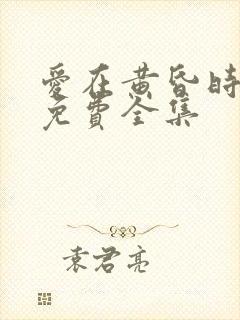 愛在黄昏時
免費全集
袁君亮